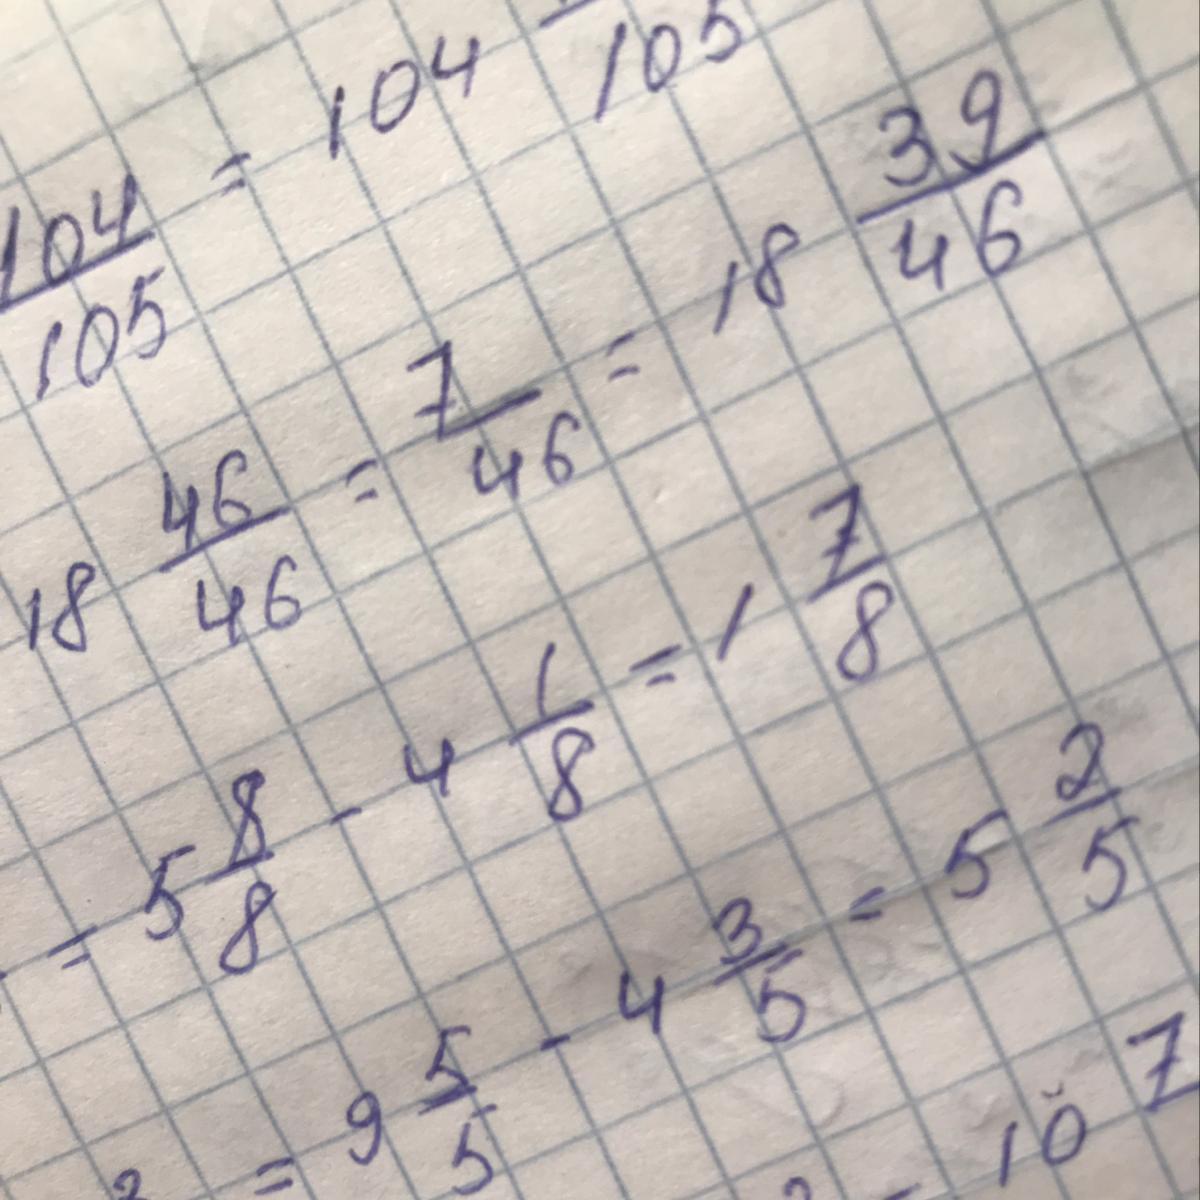 104/105 = 104 /105
18 46/46 = 7/46 = 18 39/46
= 5 8/8 - 4 1/8 = 1 7/8
= 9 5/5 - 4 3/5 = 5 2/5
10 7